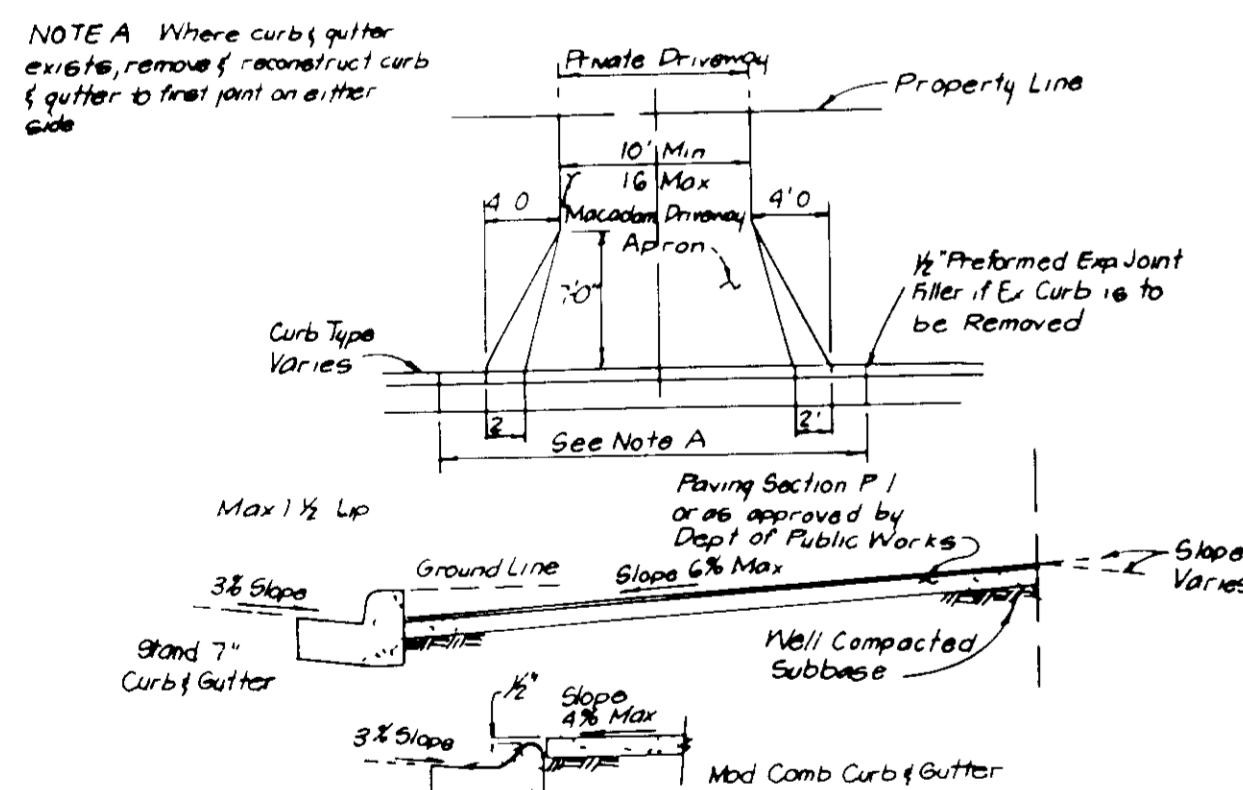 NOTE A Where curb & gutter
exists, remove & reconstruct curb
& gutter to first joint on either
side
Private Driveway
Property Line
10' Min
16 Max
4 0
4'0
Macadam Driveway
Apron
7'0"
1/2" Preformed Exp Joint
Filler if Ex Curb is to
be Removed
Curb Type
Varies
2
2'
See Note A
Max 1 1/2 Lip
Paving Section P 1
or as approved by
Dept of Public Works
Ground Line
Slope 6% Max
Slope
Varies
3% Slope
Stand 7"
Curb & Gutter
Well Compacted
Subbase
1/2"
Slope
4% Max
3% Slope
Mod Comb Curb & Gutter